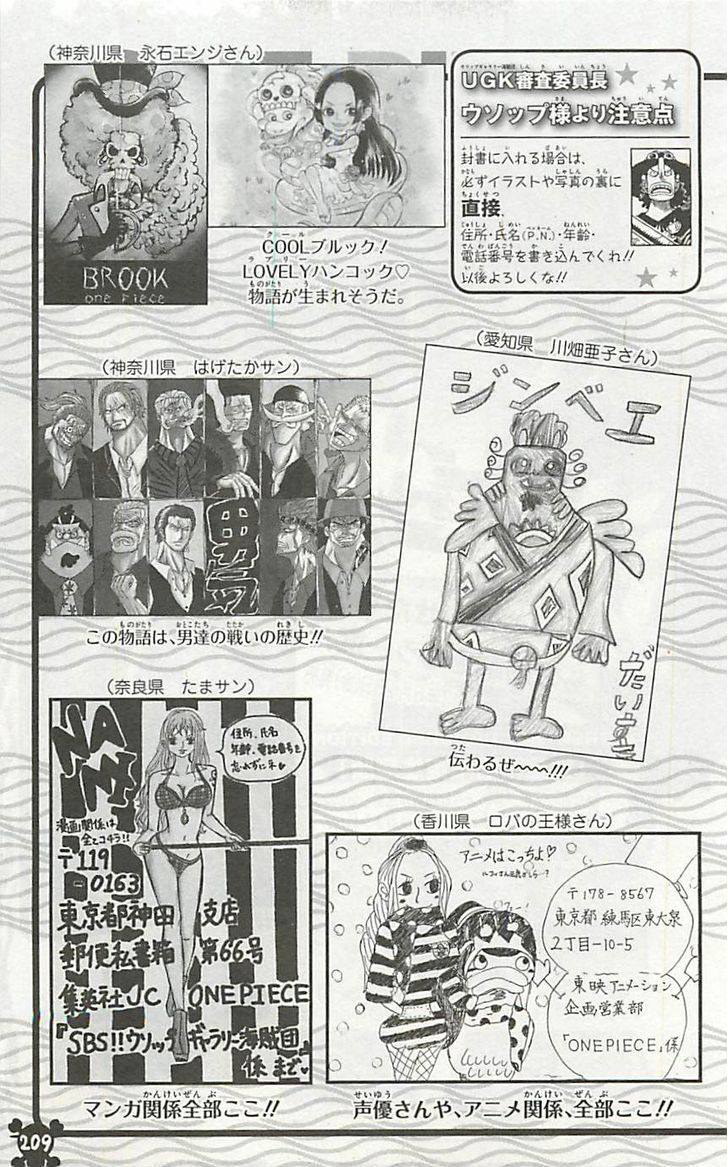 (神奈川県 永石エンジさん)
BROOK
one piece
COOLブルック!
LOVELYハンコック♡
物語が生まれそうだ。
UGK審査委員長
ウソップ様より注意点
封書に入れる場合は、
必ずイラストや写真の裏に
直接、
住所・氏名(P.N.)・年齢・
電話番号を書き込んでくれ!!
以後よろしくな!!
(神奈川県 はげたかサン)
この物語は、男達の戦いの歴史!!
(愛知県 川畑亜子さん)
ジンベエ
だいすき
伝わるぜ〜〜〜!!!
(奈良県 たまサン)
NAMI
住所、氏名
年齢、電話番号を
忘れずにネ♥
漫画関係は
全てコチラ!!
〒119
-0163
東京都神田 支店
郵便私書箱 第66号
集英社JC ONEPIECE
『SBS!!ウソップギャラリー海賊団
係まで♥
マンガ関係全部ここ!!
(香川県 ロバの王様さん)
アニメはこっちよ♡
〒178-8567
東京都練馬区東大泉
2丁目-10-5
東映アニメーション
企画営業部
「ONEPIECE」係
声優さんや、アニメ関係、全部ここ!!
209